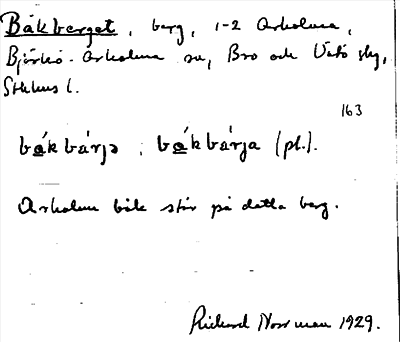 Båkberget, berg, 1-2 Arholma,
Björkö-Arholma sn, Bro och Vätö skg,
Sthlms l.
163
bǻkbárjə ; bǻkbárja (pl.).
Arholma båk står på detta berg.
Rickard Norrman 1929.